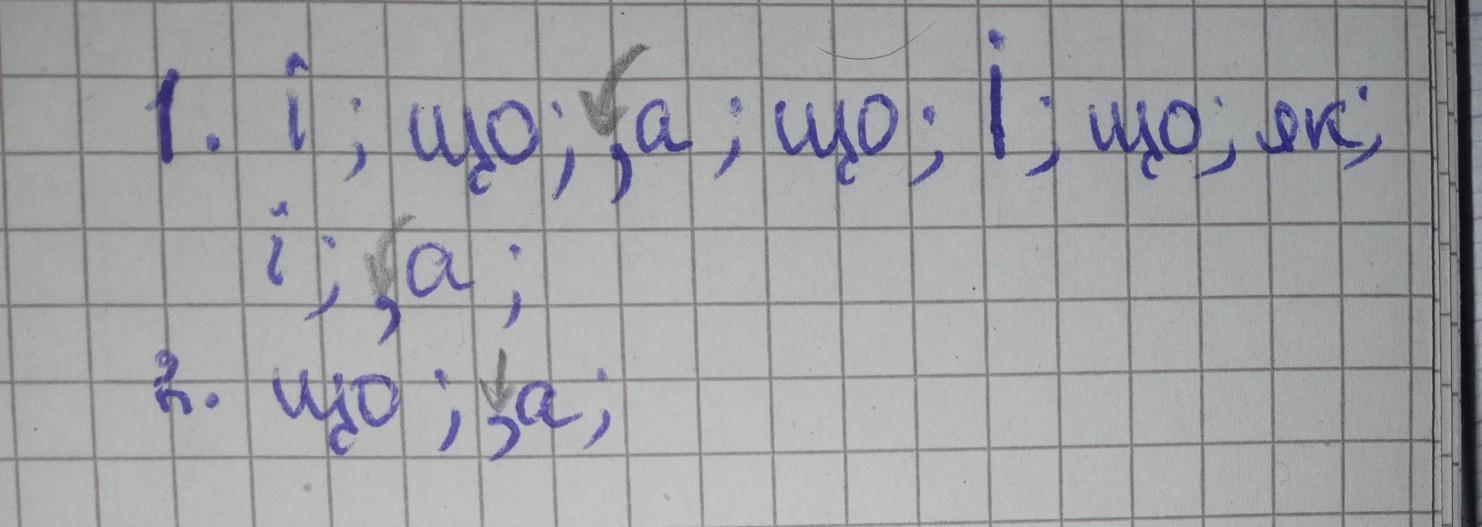 1. і; що; ,а; що; І; що; як;
і; ,а;
2. що; ,а;